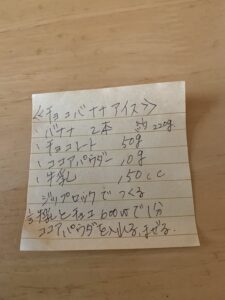 ≪チョコバナナアイス≫
バナナ 2本 約220g
、チョコレート 50g
、ココアパウダー 10g
、牛乳 150cc
ジップロックでつくる
牛乳とチョコ600Wで1分
ココアパウダーを入れる、まぜる.